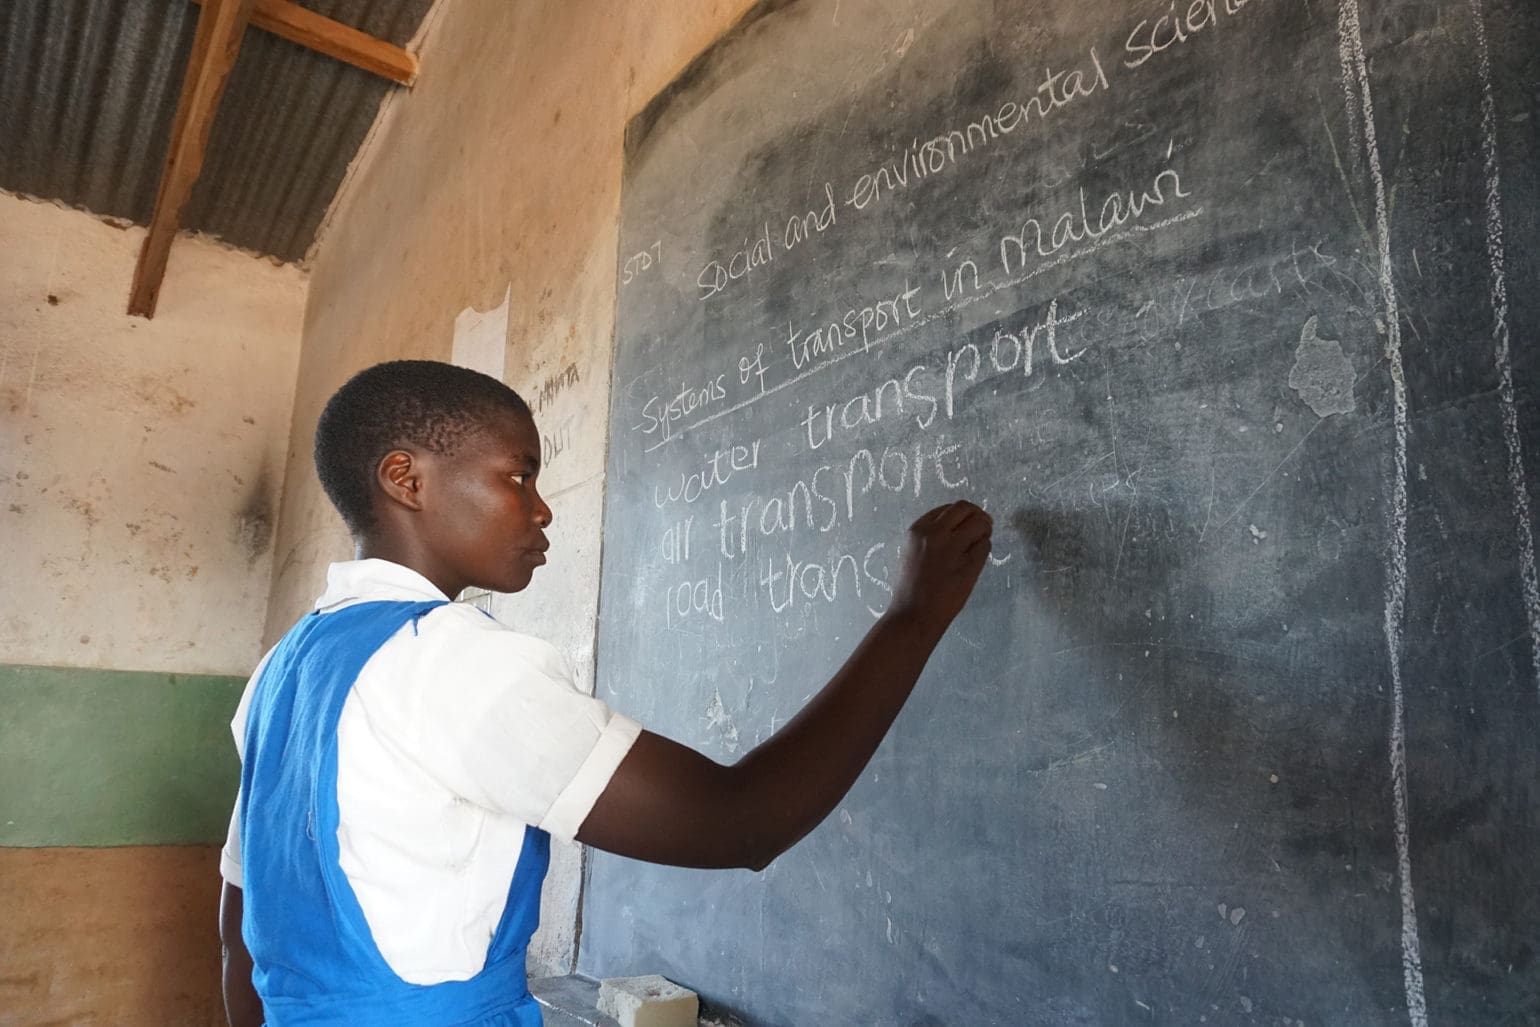 STD 7
Social and environmental scien
Systems of transport in Malawi
water transport
air transport
road trans